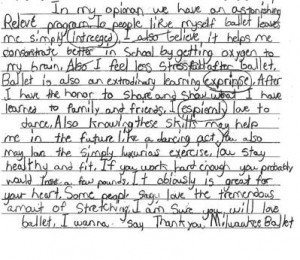 In my opinion we have an astonishing
Releve program. To people like myself ballet leaves
me simply (intreeged). I also believe it helps me
consontrate better in School by getting oxygen to
my brain. Also I feel less stressful after ballet.
Ballet is also an extrodinary learning (exprinse). After
I have the honor to Share and Show what I have
learned to family and friends. I (espienal) love to
dance. Also knowing these Skills may help
me in the future like a dancing act. You also
may love the Simply luxurius exercise. You stay
healthy and fit. If you work hard enough you probably
would lose a few pounds. It obiously is great for
your heart. Some people say love the tremendous
amout of Stretching. I am Sure you will love
ballet. I wanna say Thank you, Milwaukee Ballet